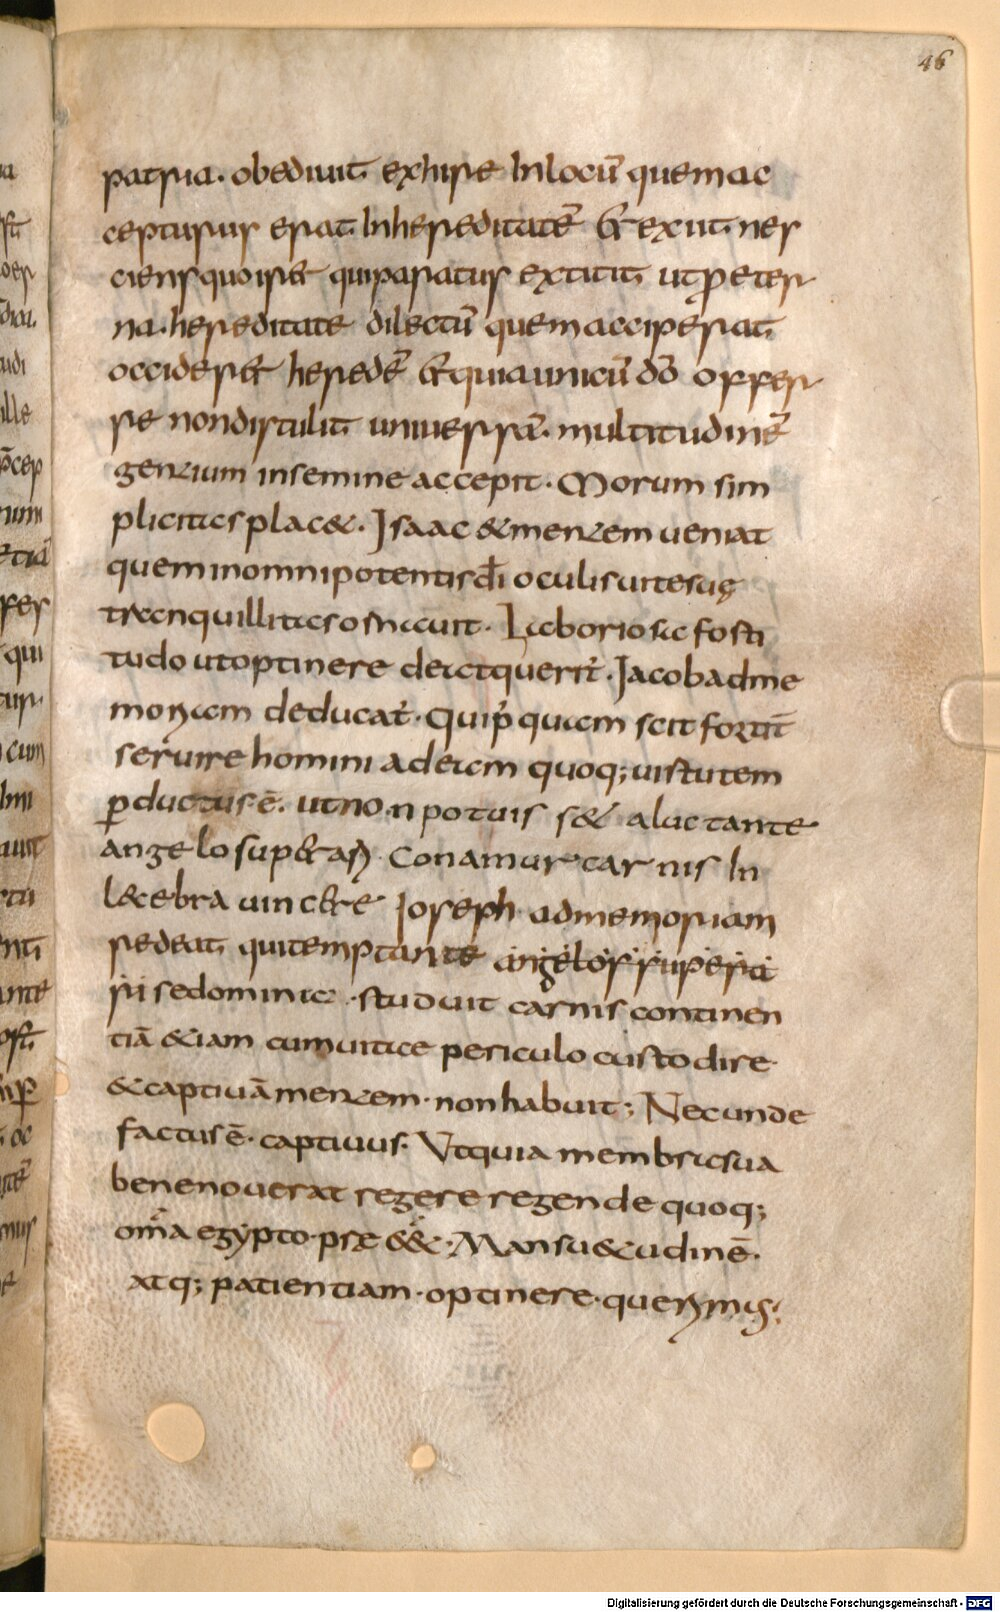 46
patria. obediuit exhire Inlocū quem ac
cepturus erat Inhereditatē & exiit nes
ciens quo iret qui paratus extitit ut p̄ eter
na hereditate dilectū quem acciperat
occideret heredē & quia unicū dō offer
re non distulit uniuersā. multitudinē
gentium in semine accepit. Morum sim
plicitas placet. Isaac & mentem ueniat
quem in omnipotentis dī oculis uite suę
tranquillitas ornauit. Laboriosa forti
tudo ut optinere
Iacob ad me
moriam deducat. quip̄ quam scit fortit̄
seruire homini ad eam quoq; uirtutem
ꝑductus ē. ut non potuisset a luctante
angelo superari. Conamur carnis In
lecebra uincere Ioseph ad memoriam
redeat qui temptante angelos supera
ri se domina. studuit carnis continen
tiā etiam cum uitae periculo custodire
& captiuā mentem. non habuit; Nec unde
factus ē. captiuus. Vt quia membra sua
bene nouerat regere regende quoq;
om̄a egypto. preett. Mansuetudinē.
atq; patientiam. optinere. querimus;
Digitalisierung gefördert durch die Deutsche Forschungsgemeinschaft - DFG